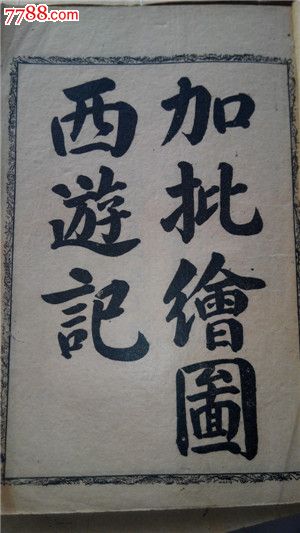 7788.com
加批繪圖
西遊記